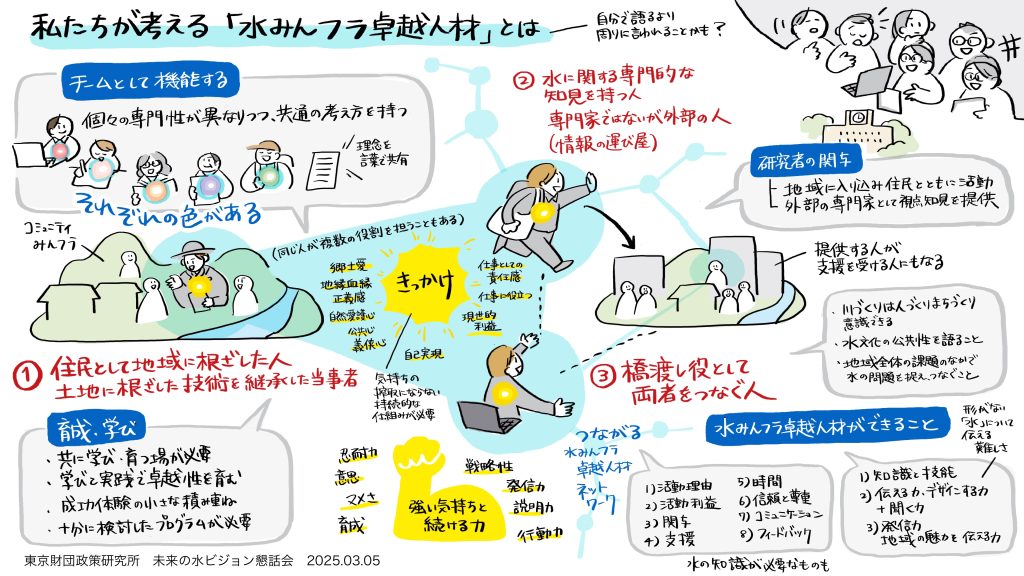 私たちが考える「水みんフラ卓越人材」とは
自分で語るより
周りに言われることかも?
チームとして機能する
個々の専門性が異なりつつ、共通の考え方を持つ
理念を
言葉で共有
それぞれの色がある
コミュニティ
みんフラ
(同じ人が複数の役割を担うこともある)
きっかけ
郷土愛
地縁血縁
正義感
自然愛護心
公共心
義侠心
自己実現
仕事としての
責任感
仕事に役立つ
現世的
利益
気持ちの
搾取にならない
持続的な
仕組みが必要
① 住民として地域に根ざした人
土地に根ざした技術を継承した当事者
② 水に関する専門的な
知見を持つ人
専門家ではないが外部の人
(情報の運び屋)
研究者の関与
地域に入り込み住民とともに活動
外部の専門家として視点知見を提供
提供する人が
支援を受ける人にもなる
・川づくりは人づくりまちづくり
意識できる
・水文化の公共性を語ること
・地域全体の課題のなかで
水の問題を捉え、つなぐこと
③ 橋渡し役として
両者をつなぐ人
育成・学び
・共に学び・育つ場が必要
・学びと実践で卓越性を育む
・成功体験の小さな積み重ね
・十分に検討したプログラムが必要
忍耐力
意思
マメさ
育成
強い気持ちと
続ける力
戦略性
発信力
説明力
行動力
つながる
水みんフラ
卓越人材
ネット
ワーク
水みんフラ卓越人材ができること
形がない
「水」について
伝える
難しさ
1)活動理由
2)活動利益
3)関与
4)支援
5)時間
6)信頼と尊重
7)コミュニケーション
8)フィードバック
水の知識が必要なものも
1)知識と技能
2)伝える力、デザインする力
+聞く力
3)発信力
地域の魅力を伝える力
東京財団政策研究所 未来の水ビジョン懇話会 2025.03.05